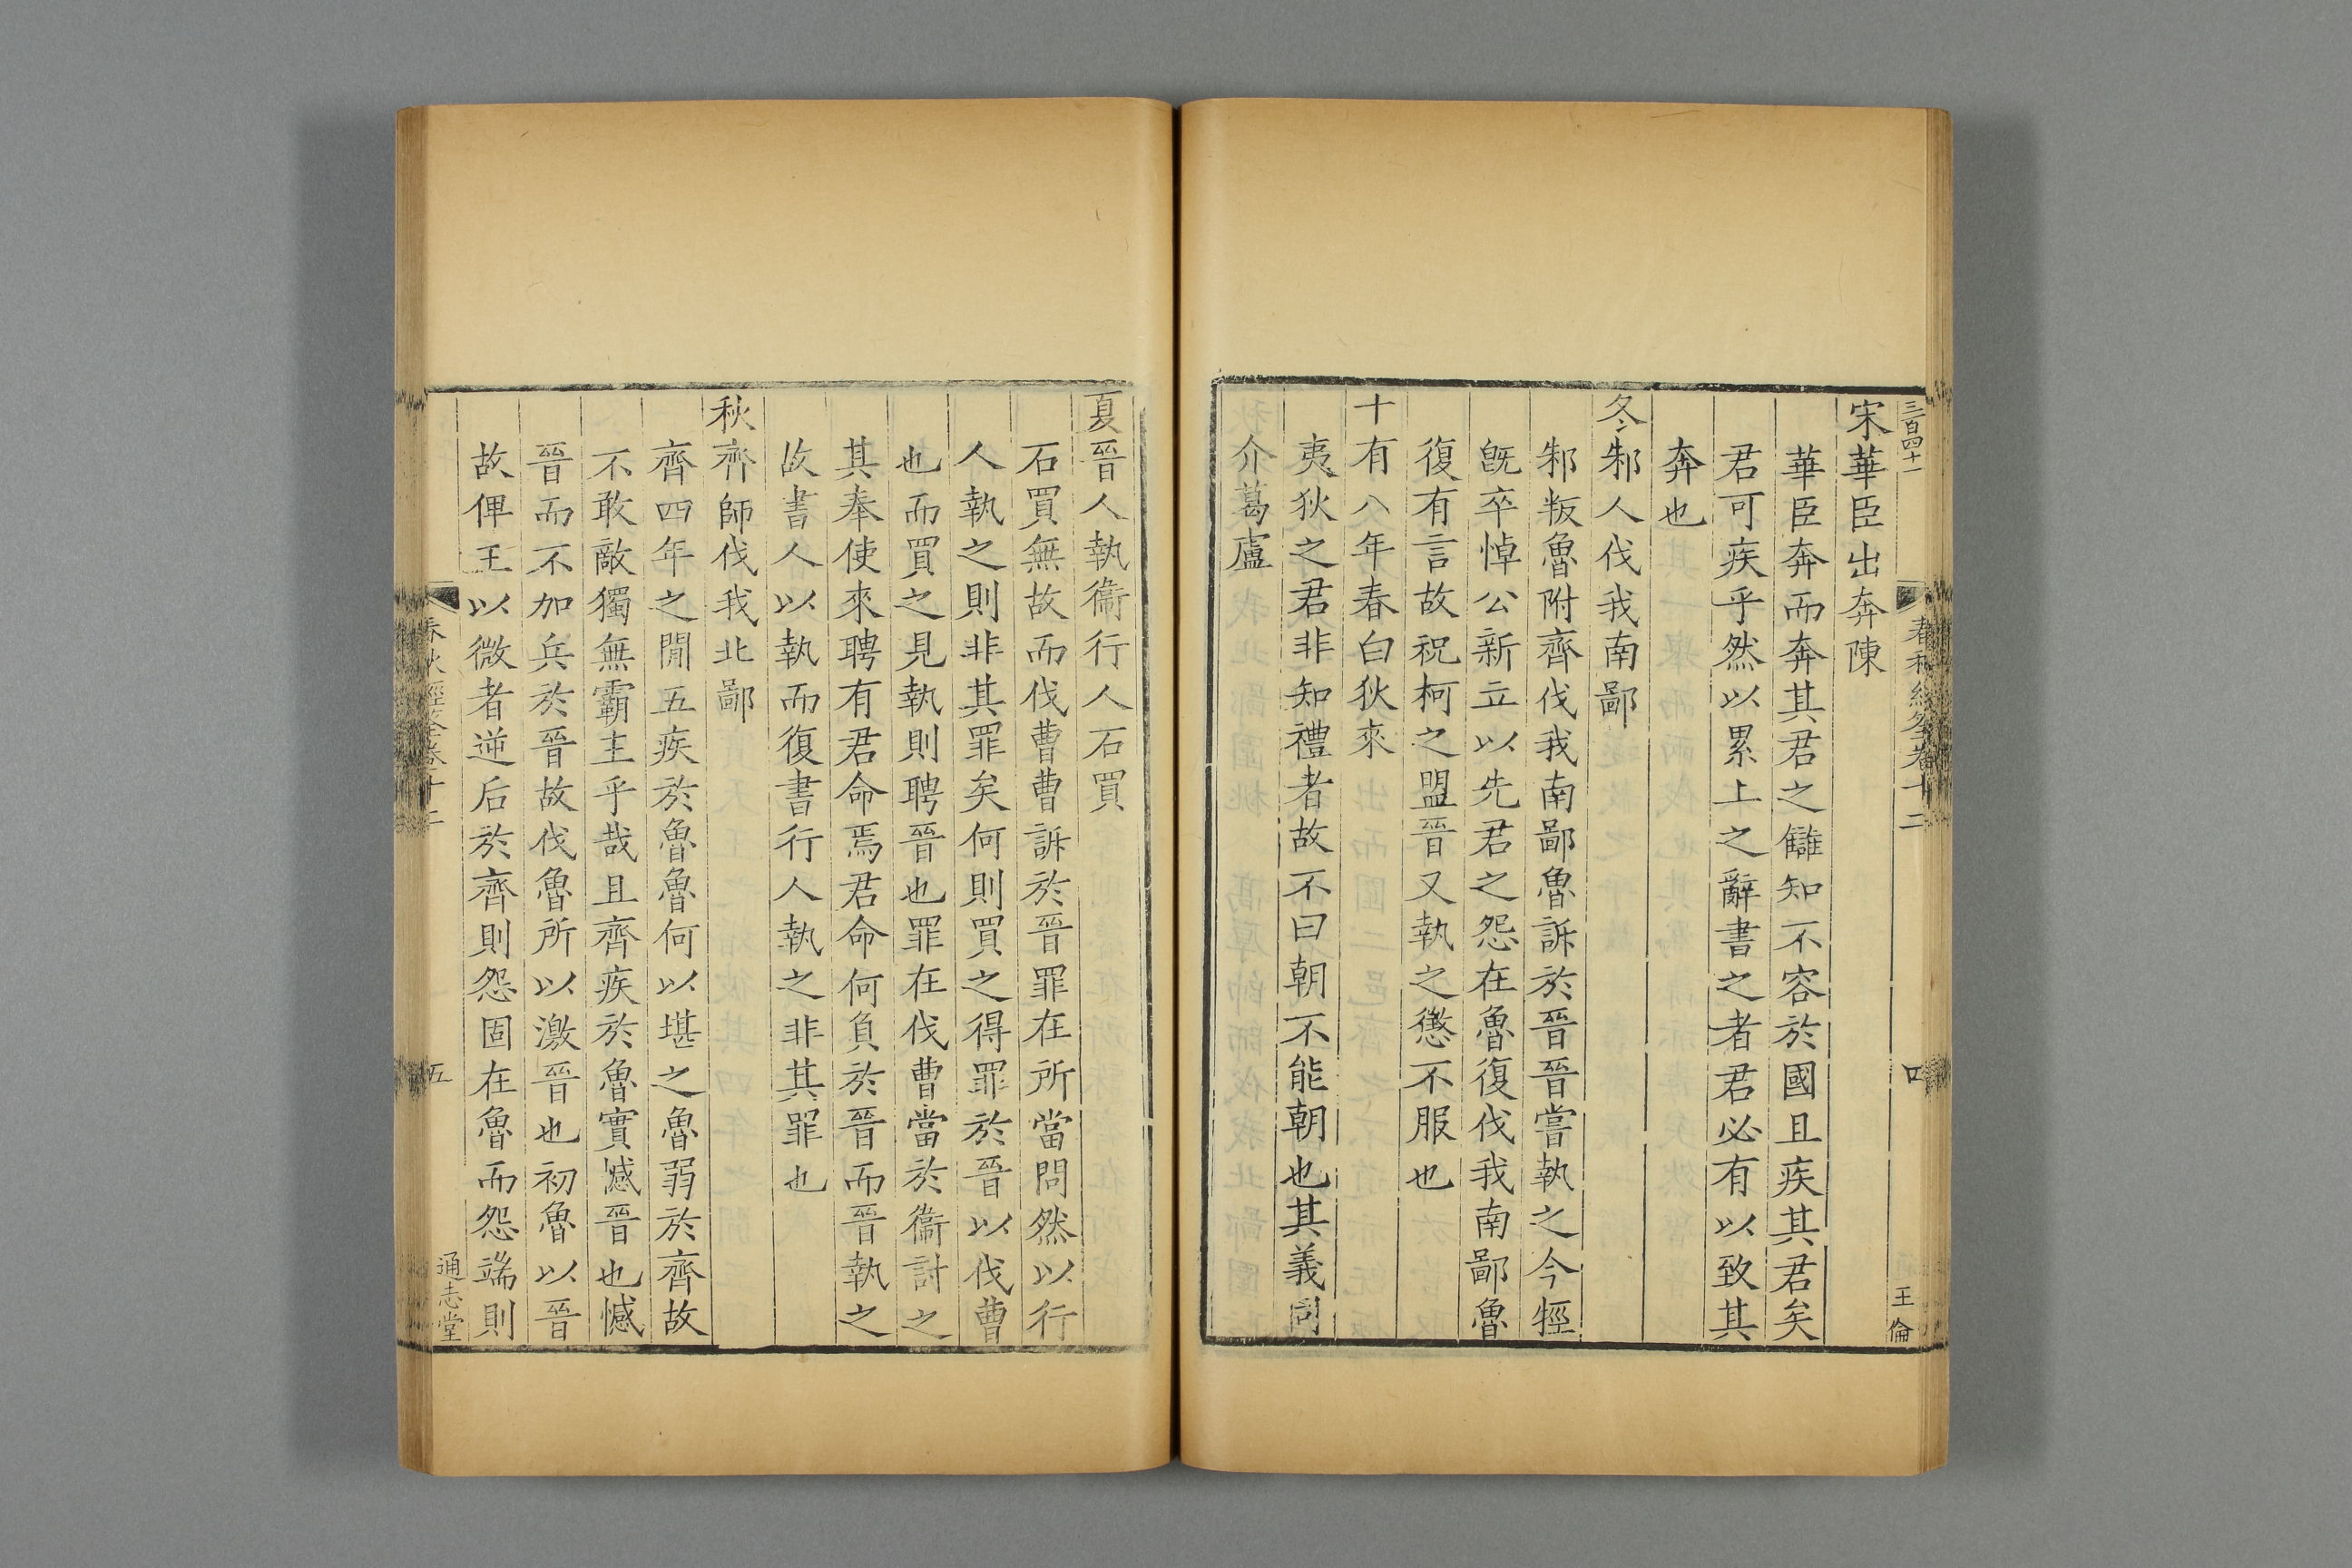 三百四十一
王倫
宋華臣出奔陳
華臣奔而奔其君之讎知不容於國且疾其君矣
君可疾乎然以累上之辭書之者君必有以致其
奔也
冬邾人伐我南鄙
邾叛魯附齊伐我南鄙魯訴於晉晉嘗執之今牼
旣卒悼公新立以先君之怨在魯復伐我南鄙魯
復有言故祝柯之盟晉又執之懲不服也
十有八年春白狄來
夷狄之君非知禮者故不曰朝不能朝也其義同
介葛盧
夏晉人執衞行人石買
石買無故而伐曹曹訴於晉罪在所當問然以行
人執之則非其罪矣何則買之得罪於晉以伐曹
也而買之見執則聘晉也罪在伐曹當於衞討之
其奉使來聘有君命焉君命何負於晉而晉執之
故書人以執而復書行人執之非其罪也
秋齊師伐我北鄙
齊四年之閒五疾於魯魯何以堪之魯弱於齊故
不敢敵獨無霸主乎哉且齊疾於魯實憾晉也憾
晉而不加兵於晉故伐魯所以激晉也初魯以晉
故俾王以微者逆后於齊則怨固在魯而怨端則
五
通志堂